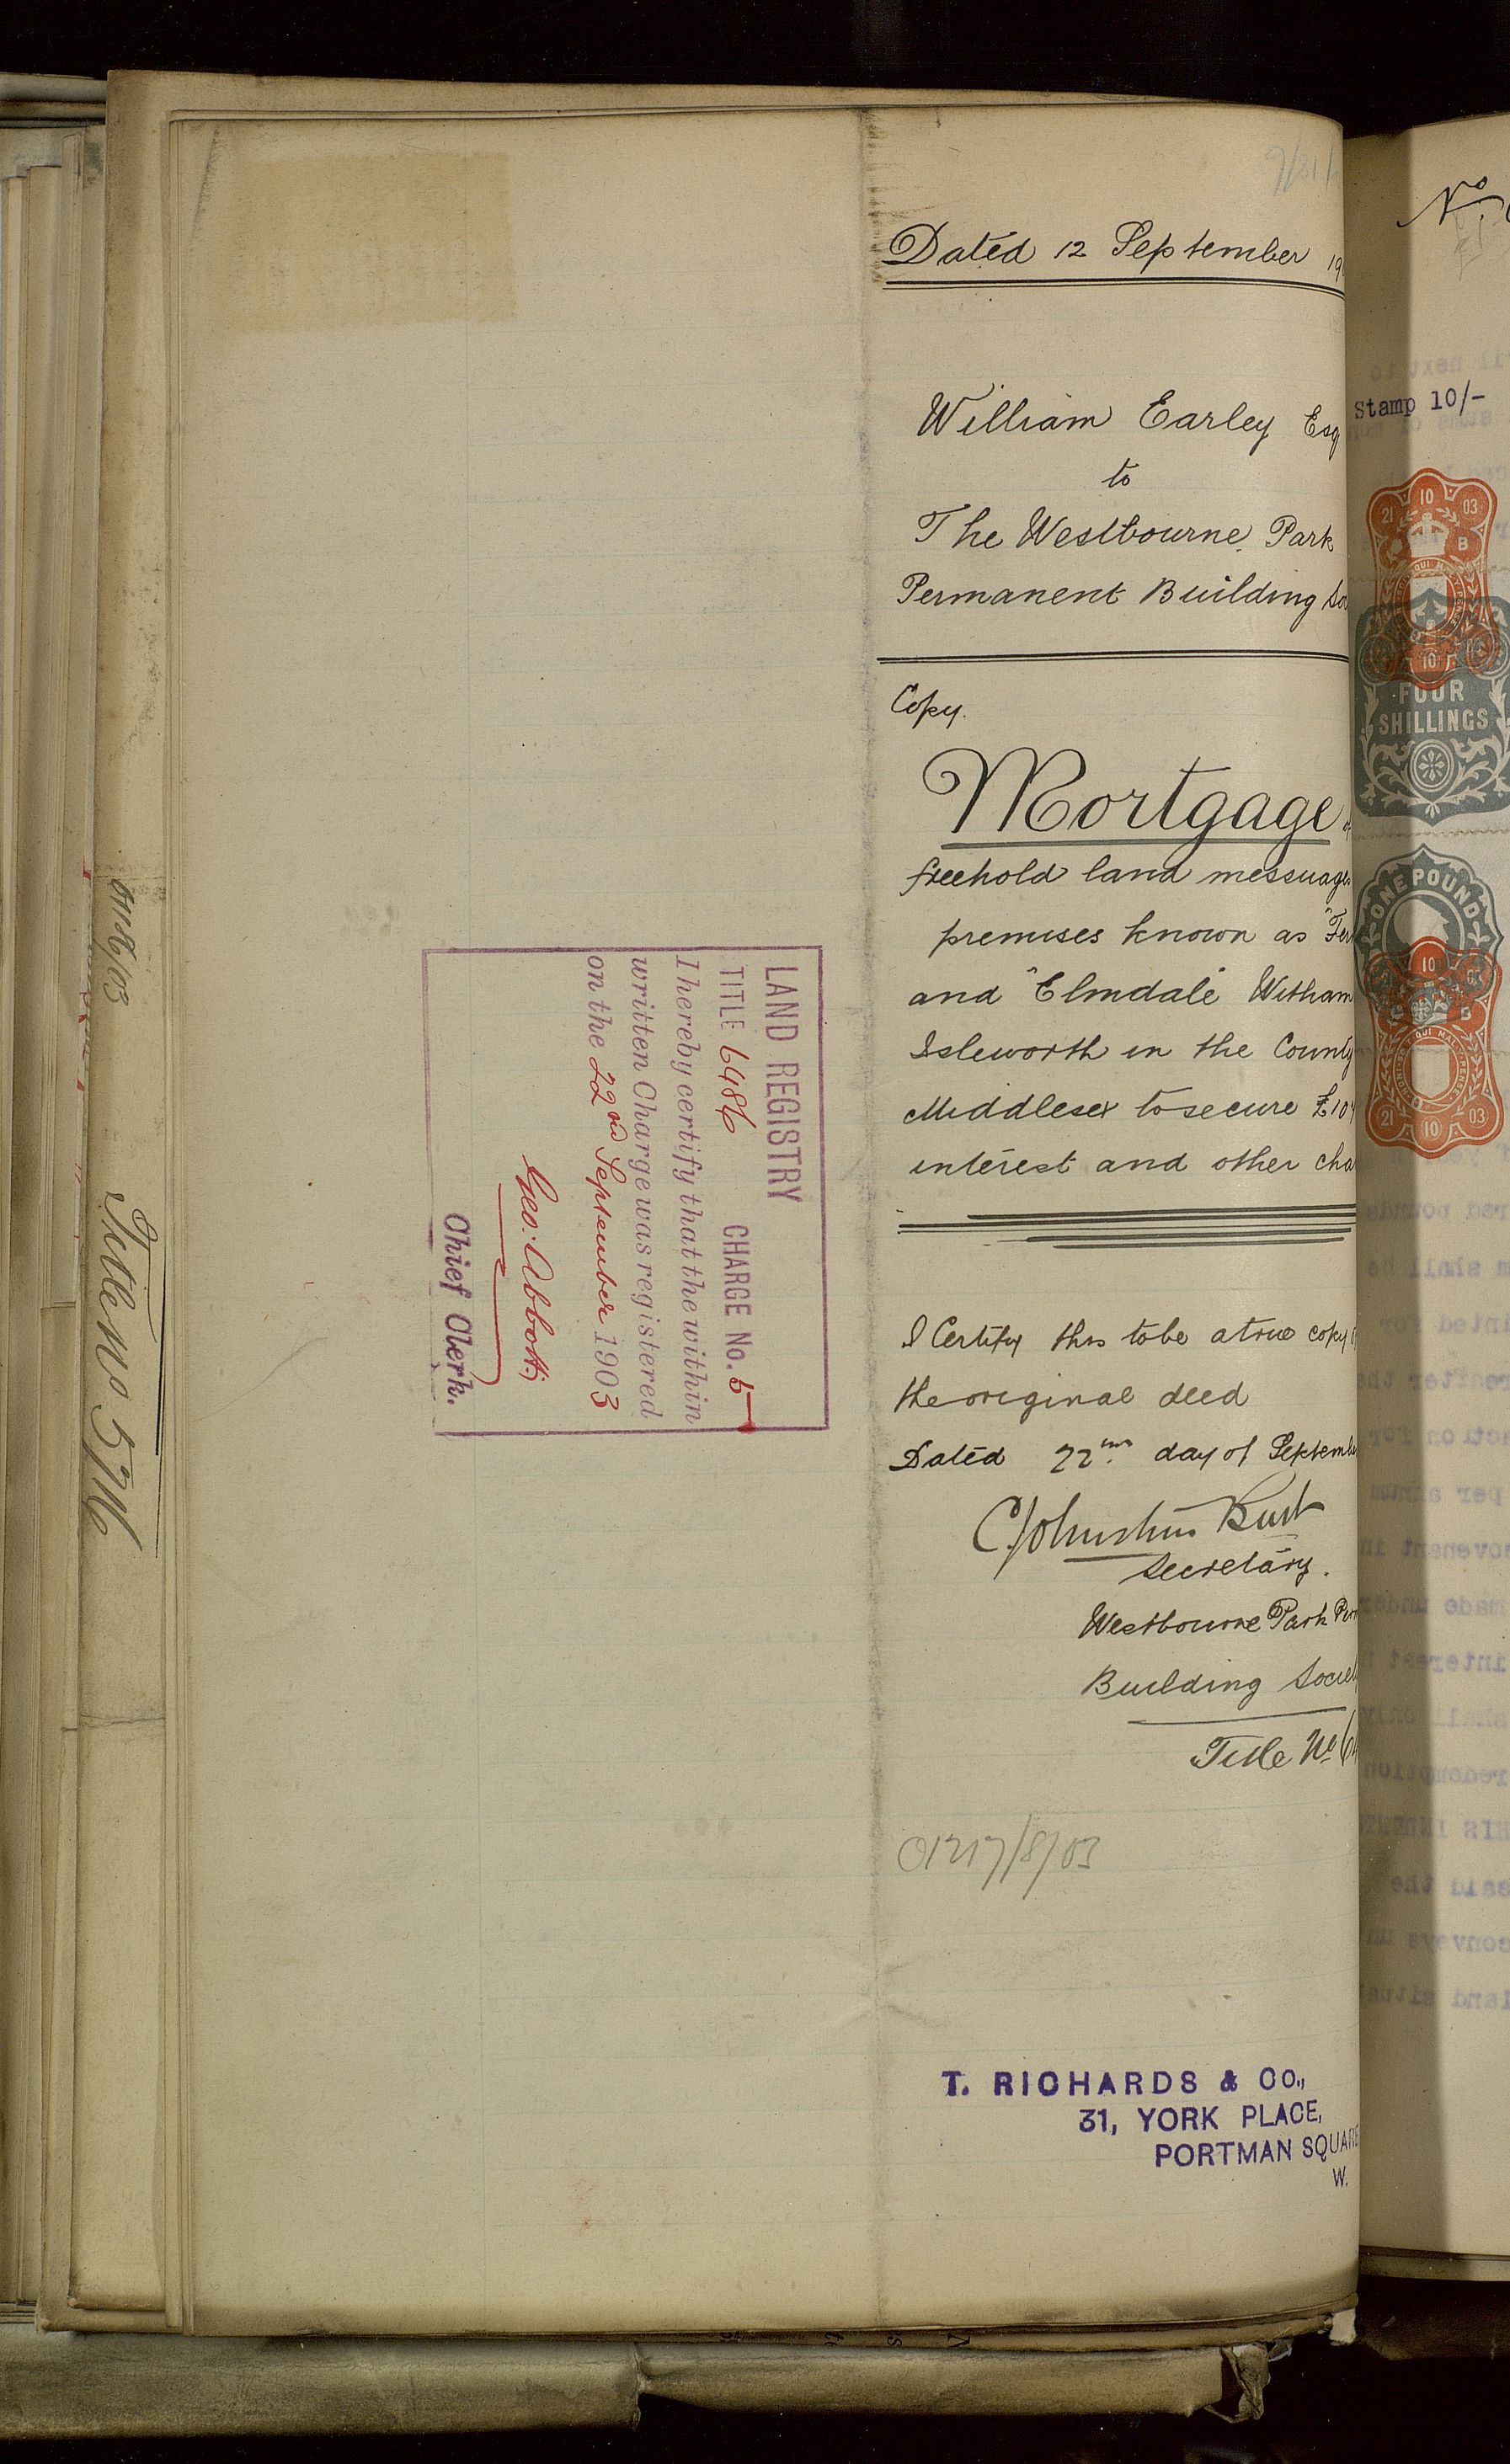 Dated 12 September 19
William Earley Esq
to
The Westbourne Park
Permanent Building So
Copy.
Mortgage
freehold land messuage
premises known as "Fer
and "Elmdale" Witham
Isleworth in the County
Middlesex to secure £10
interest and other cha
I Certify this to be a true copy
the original deed
Dated 22nd day of Septemb
Secretary.
Westbourne Park Per
Building Societ
Title No 64
01217/8/03
T. RICHARDS & CO.,
31, YORK PLACE,
PORTMAN SQUARE
W.
LAND REGISTRY
TITLE 6486 CHARGE No. 5
I hereby certify that the within
written Charge was registered
on the 22nd September 1903
Geo: Abbott
Chief Clerk.
Title No 5716
No
Stamp 10/-
21 10 03
B
10
FOUR
SHILLINGS
ONE POUND
10
B
21 10 03